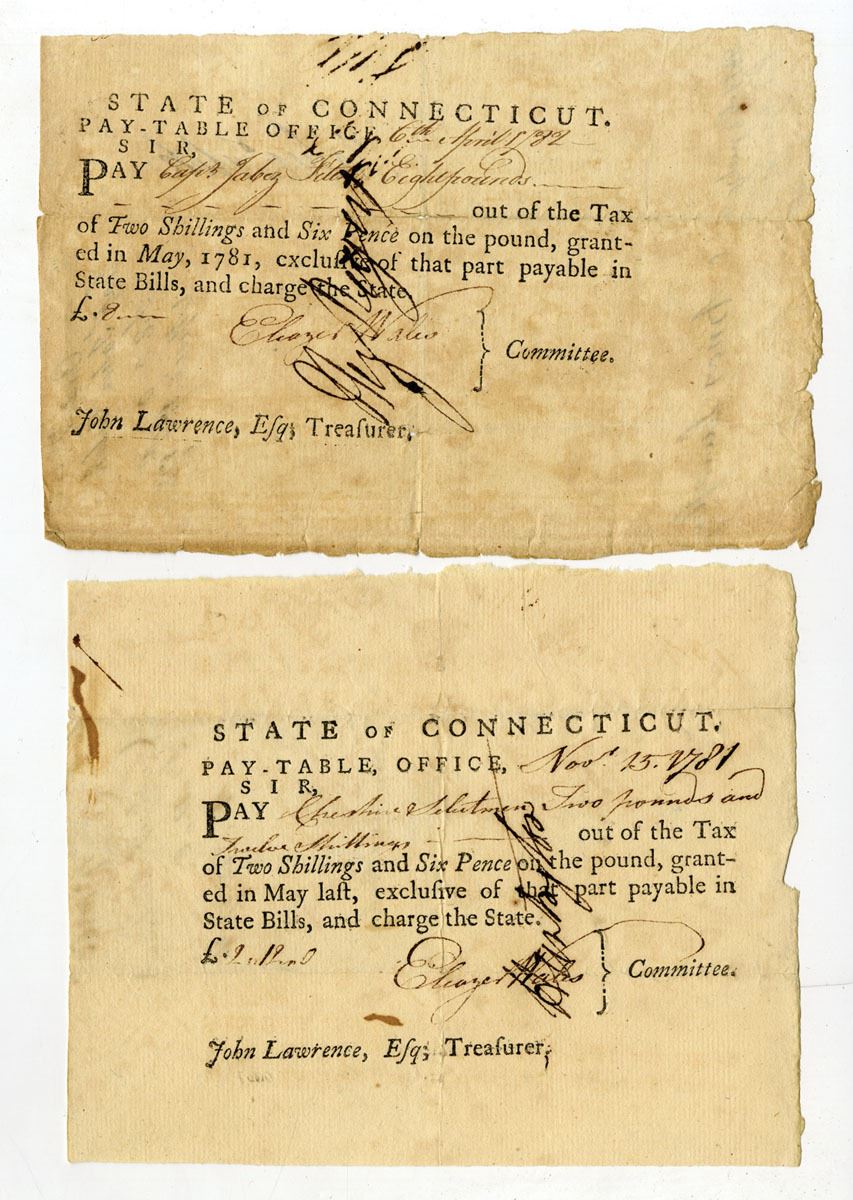 STATE OF CONNECTICUT.
PAY-TABLE OFFICE, 6th April 1782
SIR,
PAY Capt Jabez Fitch Eight pounds
out of the Tax
of Two Shillings and Six Pence on the pound, grant-
ed in May, 1781, excluſive of that part payable in
State Bills, and charge the State.
£.8
Eleazer Wales
Committee.
John Lawrence, Eſq; Treaſurer.
STATE OF CONNECTICUT.
PAY-TABLE, OFFICE, Novr 15. 1781
SIR,
PAY Cheshire Selectmen Two pounds and
Twelve Shillings out of the Tax
of Two Shillings and Six Pence on the pound, grant-
ed in May laſt, excluſive of that part payable in
State Bills, and charge the State.
£.2..12..0
Eleazer Wales Committee.
John Lawrence, Eſq; Treaſurer;